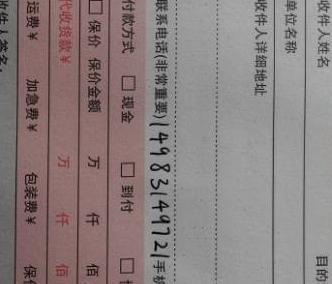 收件人姓名 目的
单位名称
收件人详细地址
联系电话(非常重要)14983149721手机
付款方式 □现金 □到付 □
□保价 保价金额 万 仟 佰
代收货款¥ 万 仟 佰
运费¥ 加急费¥ 包装费¥ 保
件人签名: